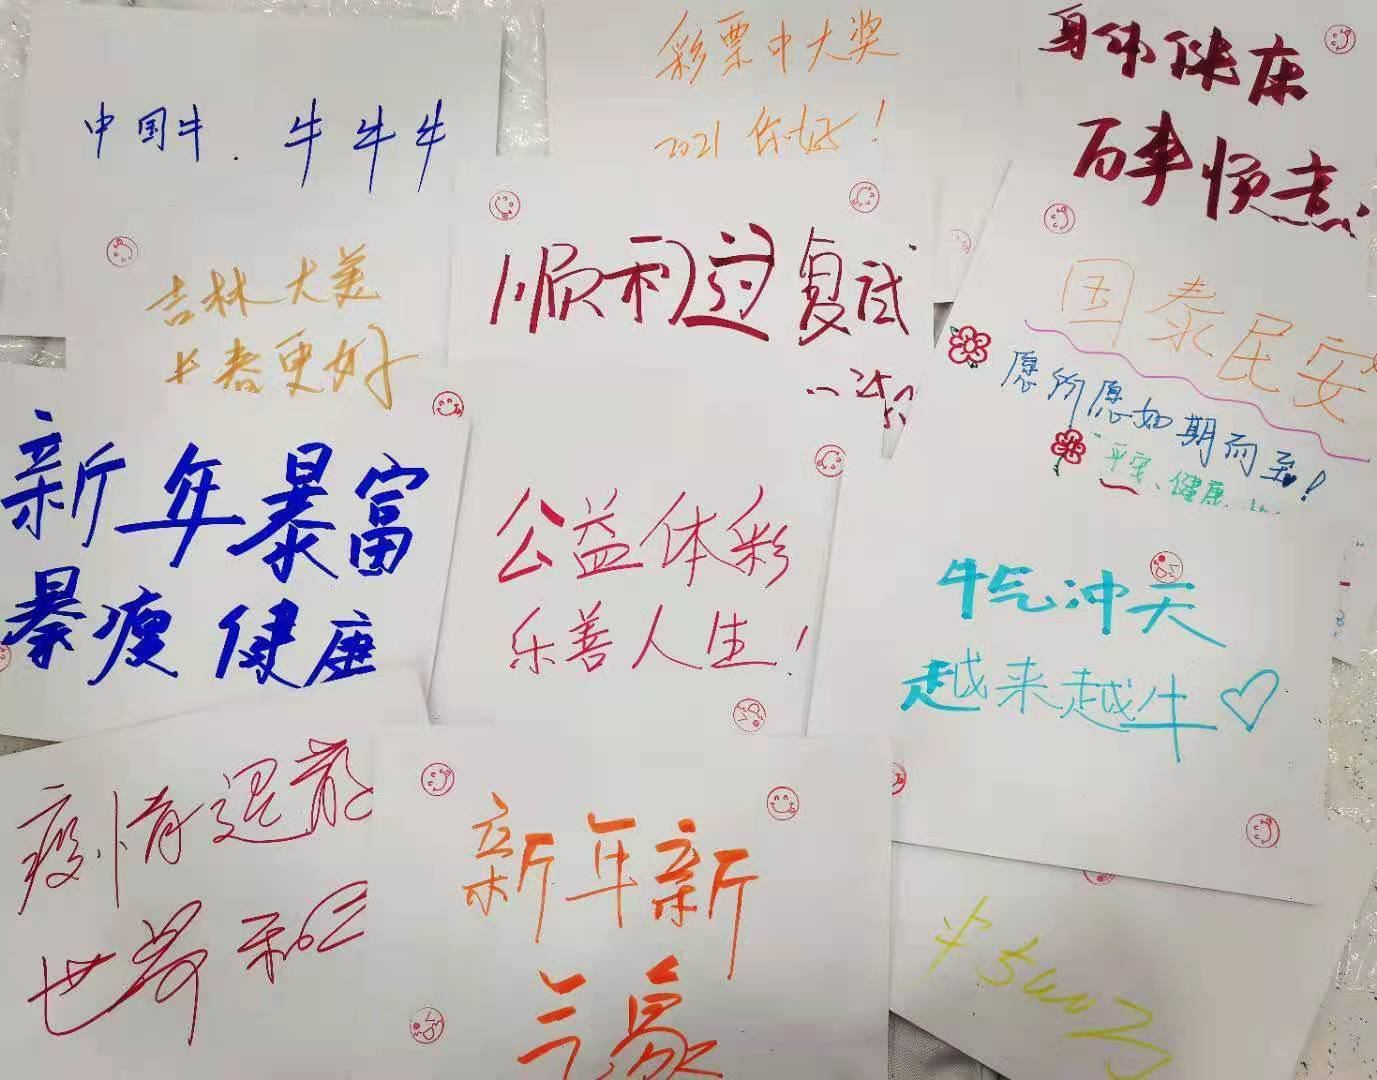 中国牛. 牛牛牛
彩票中大奖
2021 你好!
身体健康
百事顺意
吉林大美
长春更好
顺利过复试
国泰民安
愿所愿如期而至!
平安、健康、
新年暴富
暴瘦健康
公益体彩
乐善人生!
牛气冲天
越来越牛♡
疫情退散
世界和
新年新
气象
中500万